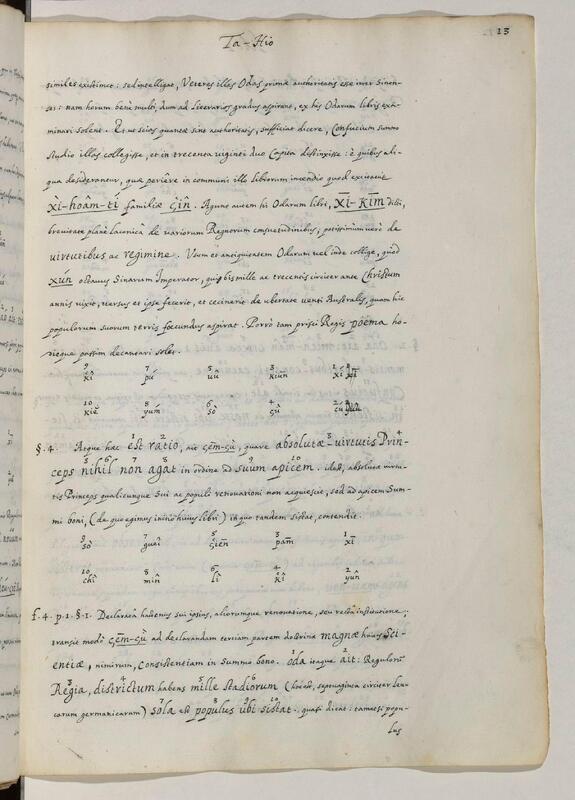 Ta-Hio
13
similes existimet: sed intelligat, Veteres illas Odas primæ authoritatis esse inter Sinen-
ses: nam horum benè multi, dum ad literarios gradus aspirant, ex his Odarum libris exa-
minari solent. Et ut scias quantæ sint authoritatis, sufficiat dicere, Confucium summo
studio illas collegisse, et in trecenta viginti duo Capita distinxisse: è quibus ali-
qua desiderantur, quæ perière in communi illo librorum incendio quod excitavit
xi-hoâm-tí familiæ çîn. Agunt autem hi Odarum libri, xī-kīm dicti,
brevitate planè laconicâ de variorum Regnorum consuetudinibus; potissimùm verò de
virtutibus ac regimine. Usum et antiquitatem Odarum vel inde collige, quòd
xún octavus Sinarum Imperator, qui bis mille ac trecentis circiter ante Christum
annis vixit, versus et ipse fecerit, et cecinerit de ubertate venti Australis, quam hic
populorum suorum terris fœcundus aspirat. Porrò tam prisci Regis pöema ho-
dieque passim decantari solet.
9 7 5 3 1
kî pú uû kiūn xí
10 8 6 4 2
kiĕ yúm sò çù cú
§. 4. Atque hæc est ratio, ait çēm-çù, quare absolutæ virtutis Prin-
ceps nihil non agat in ordine ad suum apicem. idest, absolutæ virtu-
tis Princeps qualicunque sui ac populi renovationi non acquiescit, sed ad apicem Sum-
mi boni, (de quo egimus initio huius libri) in quo tandem sistat, contendit.
9 7 5 3 1
sò guêi çiēn pām xī
10 8 6 4 2
chì mîn lì kī yûn
f. 4. p. 1. §. 1. Declaratâ hactenus sui ipsius, aliorumque renovatione, seu rectâ institutione;
transit modò çēm-çù ad declarandam tertiam partem doctrinæ magnæ huius Sci-
entiæ, nimirum, Consistentiam in Summo bono. Oda itaque ait: Regulorũ
Regia, districtum habens mille stadiorum (hoc est, septuaginta circiter leu-
carum germanicarum) sola est populus ubi sistat. quasi dicat: tametsi popu-
lus